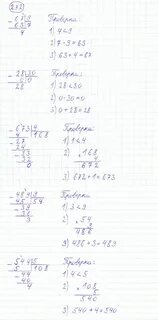 232
67 | 9
63 | 7
4
Проверка:
1) 4 < 9
2) 7·9 = 63
3) 63 + 4 = 67
28 | 30
0 | 0
28
Проверка:
1) 28 < 30
2) 0·30 = 0
3) 0 + 28 = 28
673 | 4
4 | 168
27
24
33
32
Проверка:
1) 1 < 4
2) 168
4
672
3) 672 + 1 = 673
489 | 9
45 | 54
39
36
3
Проверка:
1) 3 < 9
2) 54
9
486
3) 486 + 3 = 489
544 | 5
5 | 108
44
40
4
Проверка:
1) 4 < 5
2) 108
5
540
3) 540 + 4 = 544